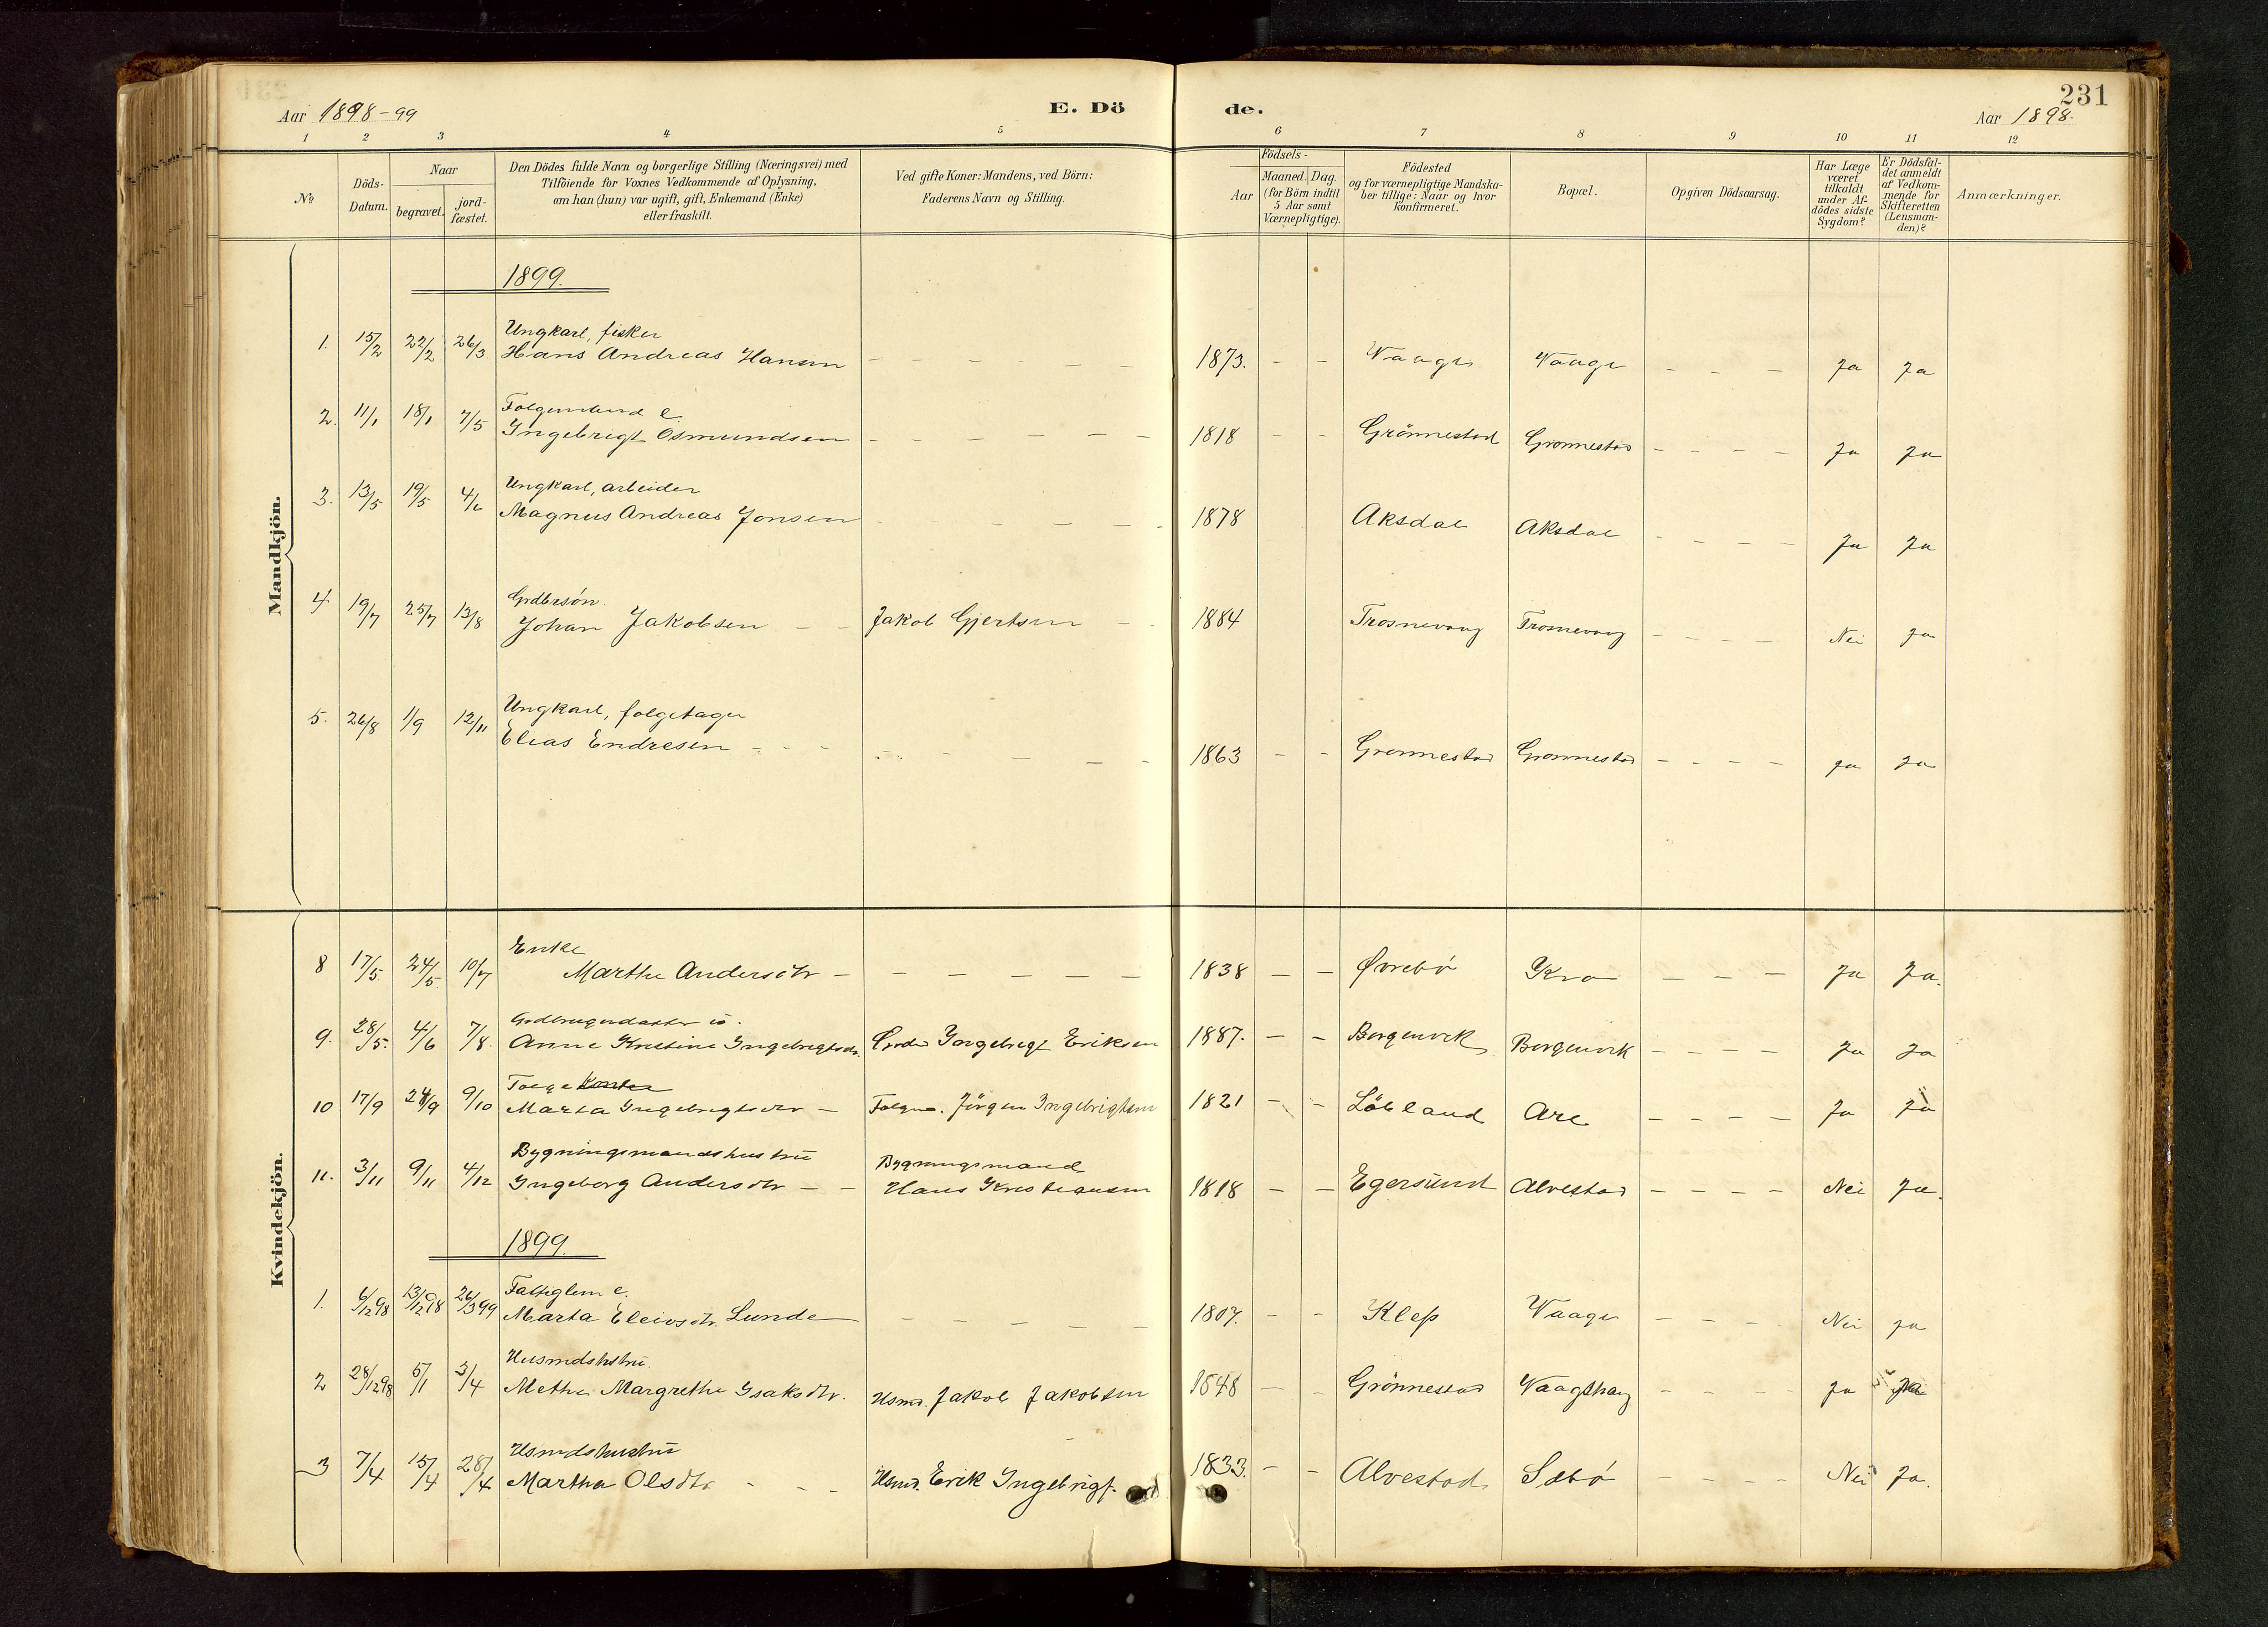 231
Aar 1898-99
E. Dö
de.
Aar 1898.
1 2 3 4 5 6 7 8 9 10 11 12
No
Döds-Datum.
Naar
begravet.
jord-fæstet.
Den Dödes fulde Navn og borgerlige Stilling (Næringsvei) med
Tilföiende for Voxnes Vedkommende af Oplysning,
om han (hun) var ugift, gift, Enkemand (Enke)
eller fraskilt.
Ved gifte Koner: Mandens, ved Börn:
Faderens Navn og Stilling.
Födsels-
Aar
Maaned. Dag.
(for Börn indtil
5 Aar samt
Værnepligtige).
Födested
og for værnepligtige Mandska-
ber tillige: Naar og hvor
konfirmeret.
Bopæl.
Opgiven Dödsaarsag.
Har Læge
været
tilkaldt
under Af-
dödes sidste
Sygdom?
Er Dödsfal-
det anmeldt
af Vedkom-
mende for
Skifteretten
(Lensman-
den)?
Anmærkninger.
Mandkjön.
1899.
Ungkarl, fisker
1. 15/2 22/2 26/3 Hans Andreas Hansen - - - - - 1873. - - Vaage Vaage - - - Ja Ja
Folgemand e
2. 11/1 18/1 7/5 Ingebrigt Osmundsen - - - - - 1818 - - Grönnestad Gronnestad - - - - Ja Ja
Ungkarl, arbeider
3. 13/5 19/5 4/6 Magnus Andreas Jonsen - - - - 1878 Aksdal Aksdal - - - - Ja Ja
Grdbrsön
4 19/7 25/7 13/8 Johan Jakobsen - - Jakob Gjertsen - - 1884 Trosnevaag Trosnevaag - - - - Nei Ja
Ungkarl, folgetager
5. 26/8 1/9 12/11 Elias Endresen - - - - - - - 1863 - - Gronnestad Gronnestad - - - - Ja Ja
Kvindekjön.
Enke
8 17/5. 24/5. 10/7 Marthe Andersdtr - - - - - - 1838 - - Øvrebö Kro - - - Ja Ja.
9. 28/5. 4/6 7/8. Anne Kristine Ingebrigtsdr. Ingebrigt Eriksen 1887. - - Borgenvik Borgenvik - - - - Ja Ja
Folgekone
10 17/9 24/9 9/10 Marta Ingebrigtsdtr - Folgm. Jörgen Ingebrigtsen 1821 - - Löbland Are - - - - Ja Ja
Bygningsmandshustru
Bygningsmand
11. 3/11 9/11 4/12 Ingeborg Andersdtr - - Hans Kristiansen 1818 - - Egersund Alvestad - - - - Nei Ja.
1899.
Fattiglem e.
1. 6/12 98 13/12 98 26/3 99 Marta Eleivsdtr. Lunde - - - - 1807. - - Klep Vaage - - - Nei Ja
Husmdshstru.
2 28/12 98 5/1 3/4 Metha Margrethe Isaksdtr. Husmd. Jakob Jakobsen 1848 - - Grönnestad Vaagshaug - - - Ja Ja
Husmdshustru
3 7/4 15/4 28/4 Martha Olsdtr - - - Husmd. Erik Ingebrigt. 1833. - - Alvestad Sebö - - - - Nei Ja.